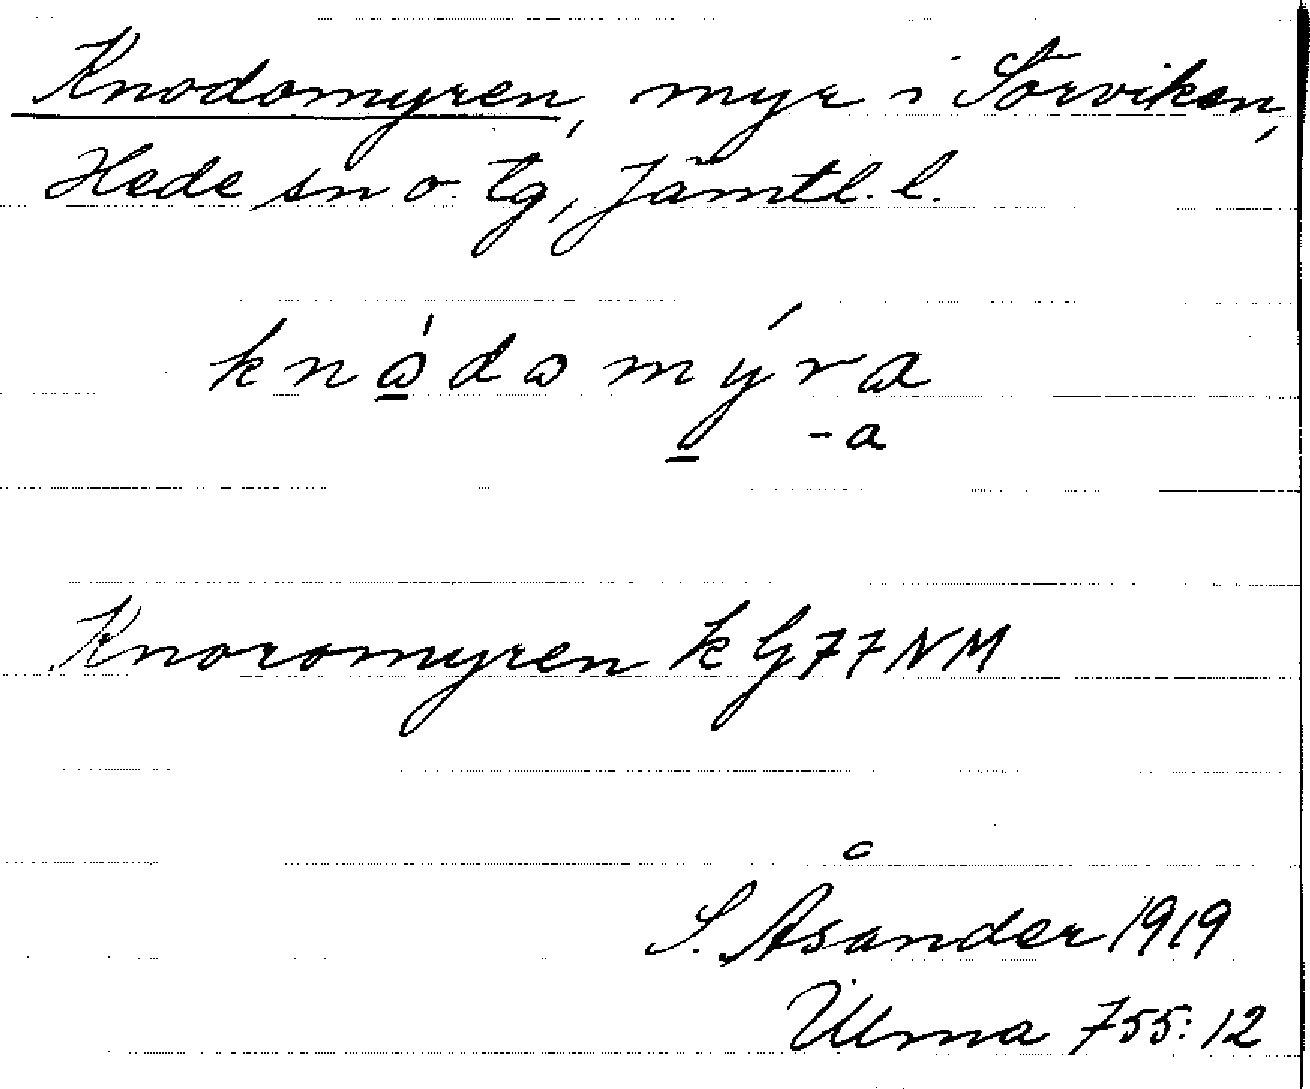 Knodomyren, myr i Storviken,
Hede sn o. tg, Jämtl. l.
knådåmýra
-a
Knoromyren k G77NM
S. Åsander 1919
Ulma 755:12